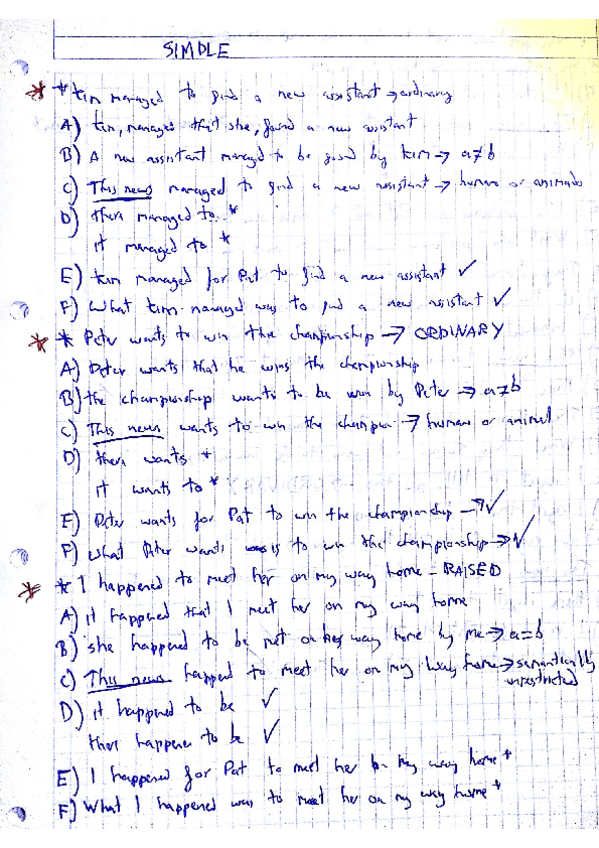 SIMPLE
* Kim managed to find a new assistant → ordinary
A) Kim, managed that she, found a new assistant
B) A new assistant managed to be found by Kim → a≠b
C) This news managed to find a new assistant → human or animado
D) there managed to *
it managed to *
E) Kim managed for Pat to find a new assistant ✓
F) What Kim managed was to find a new assistant ✓
* Peter wants to win the championship → ORDINARY
A) Peter wants that he wins the championship
B) the championship wants to be won by Peter → a≠b
C) This news wants to win the champion → human or animal
D) there wants *
it wants to *
E) Peter wants for Pat to win the championship → ✓
F) What Peter wants is to win the championship → ✓
* I happened to meet her on my way home = RAISED
A) it happened that I meet her on my way home
B) she happened to be met on way home by me → a=b
C) This news happend to meet her on my way home → semantically unrestricted
D) it happened to be ✓
there happene to be ✓
E) I happened for Pat to meet her on my way home *
F) What I happened was to meet her on my way home *